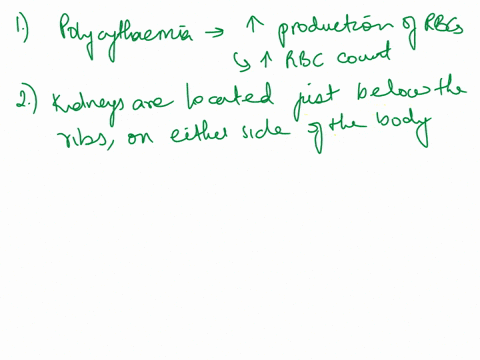 1.) Polycythaemia → ↑ production of RBCs
↳ ↑ RBC count
2.) Kidneys are located just below the
ribs, on either side of the body